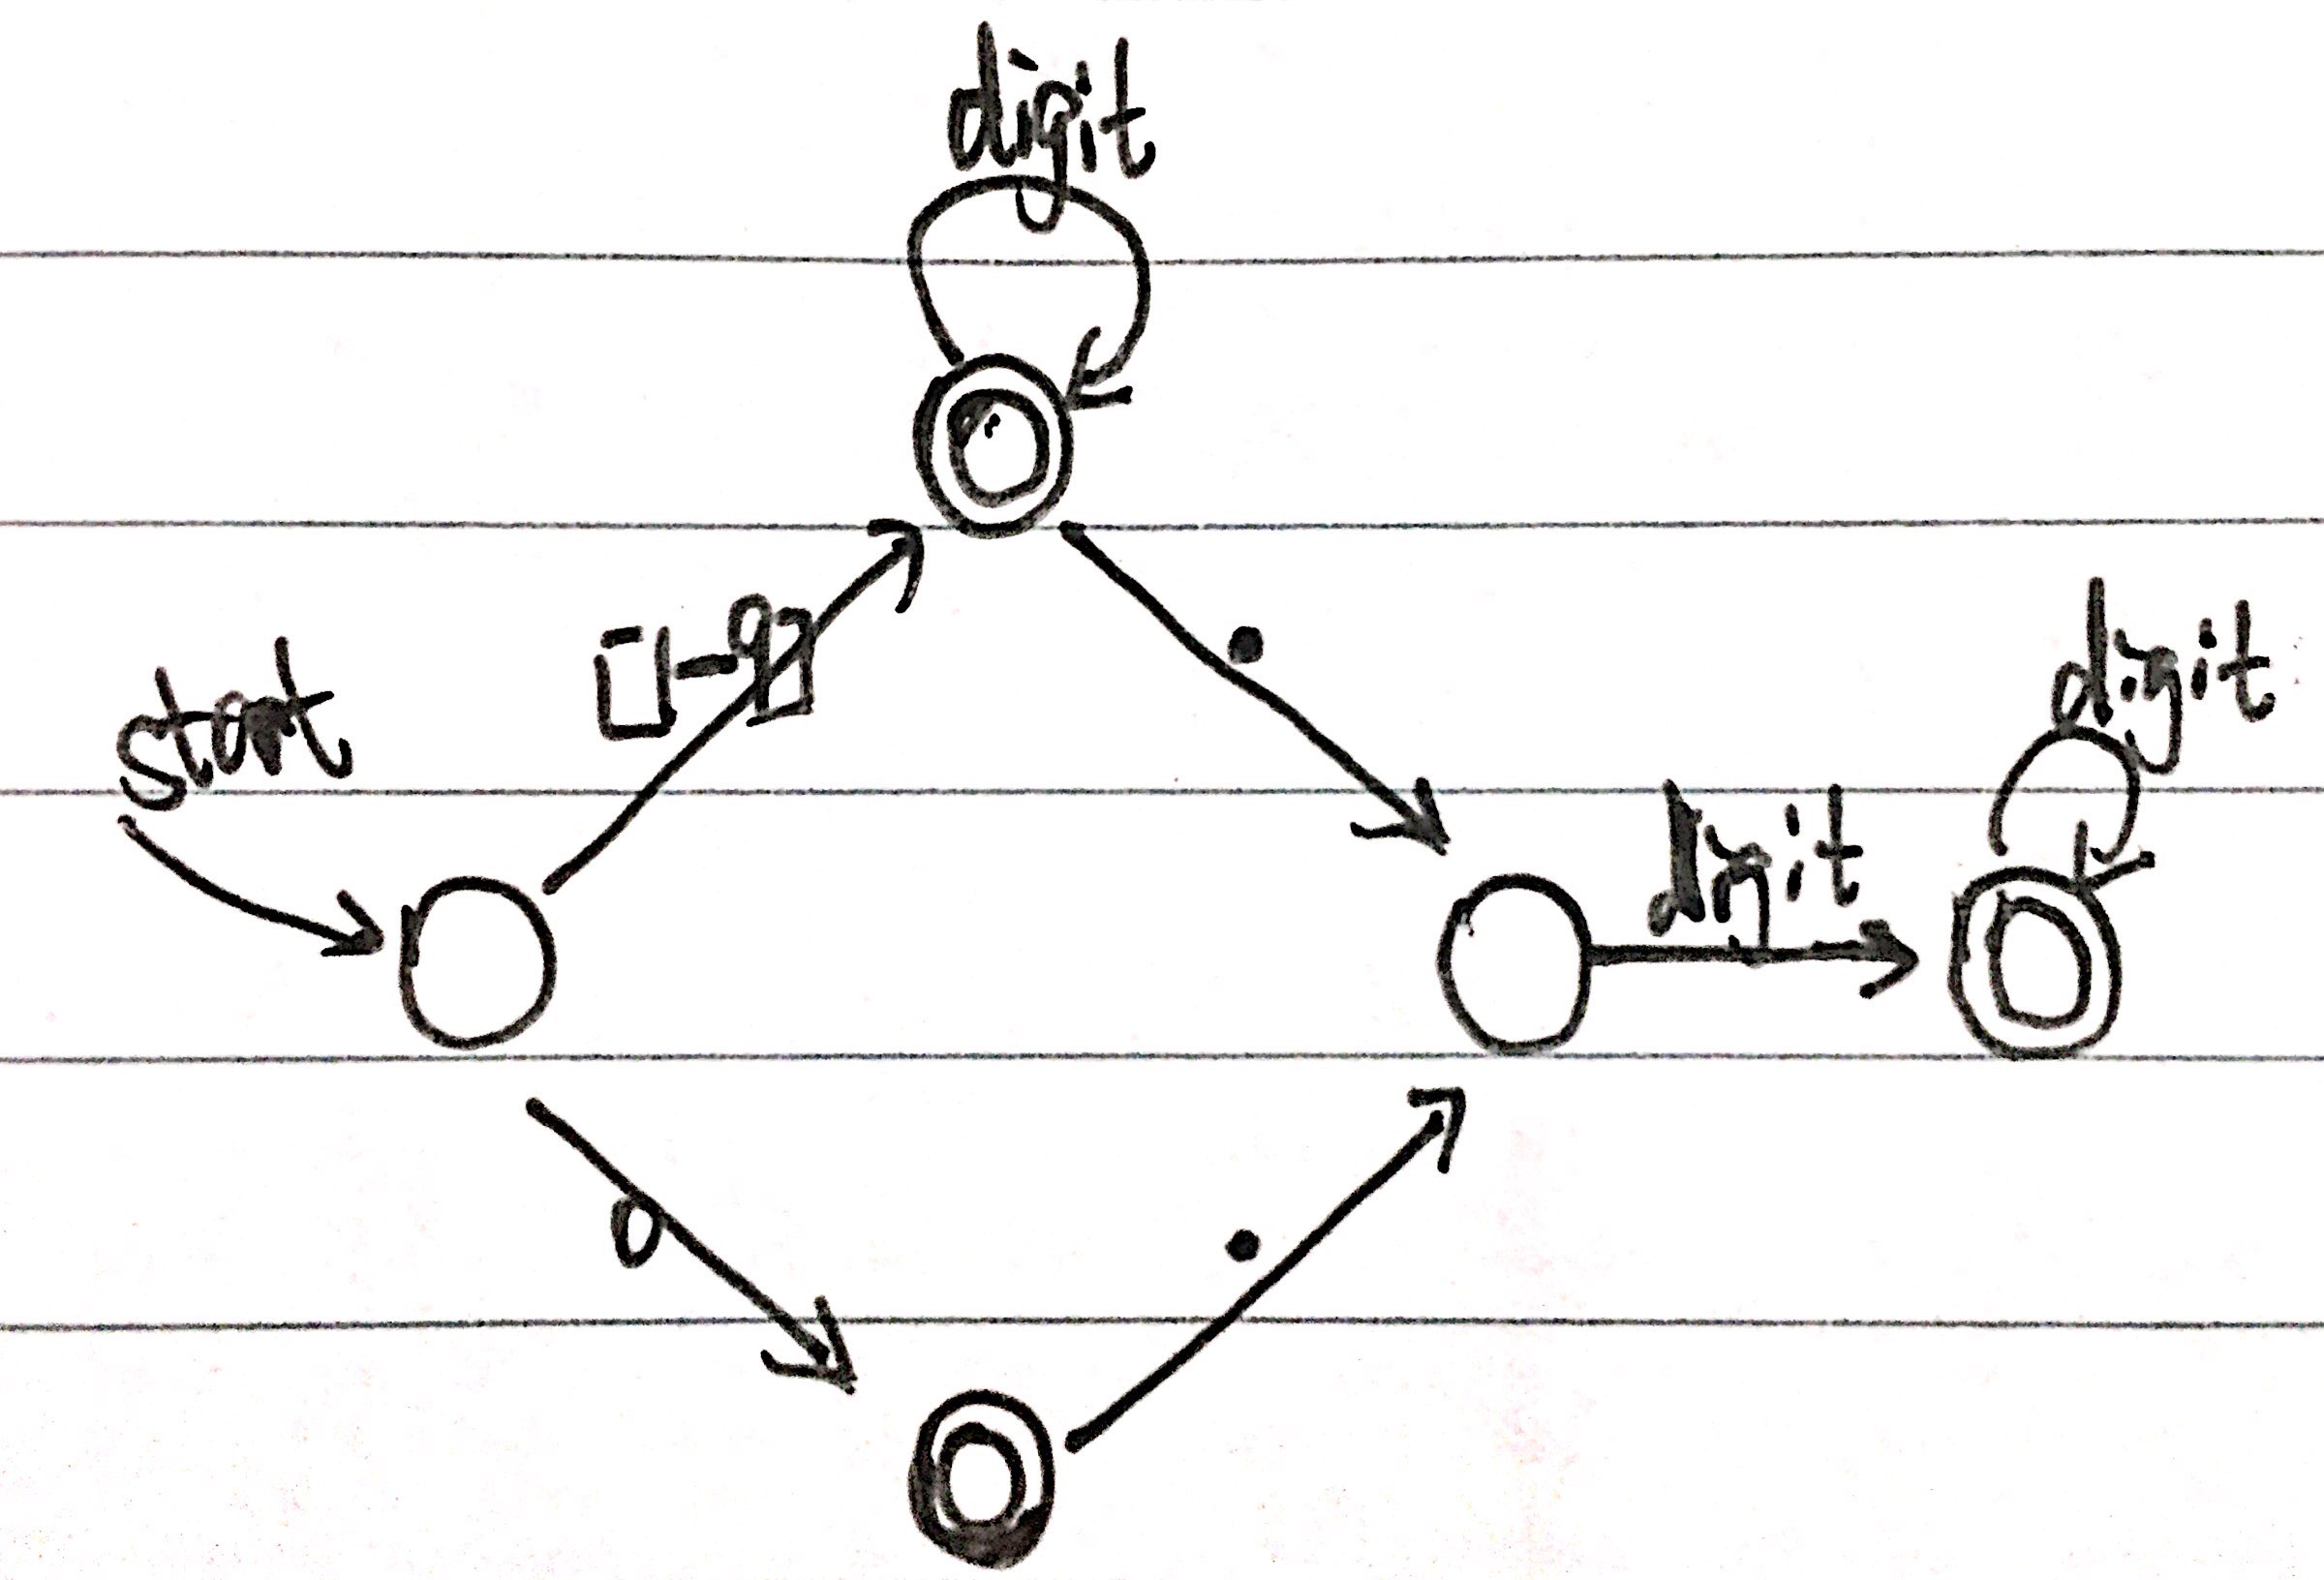 digit
[1-9]
.
start
digit
digit
0
.